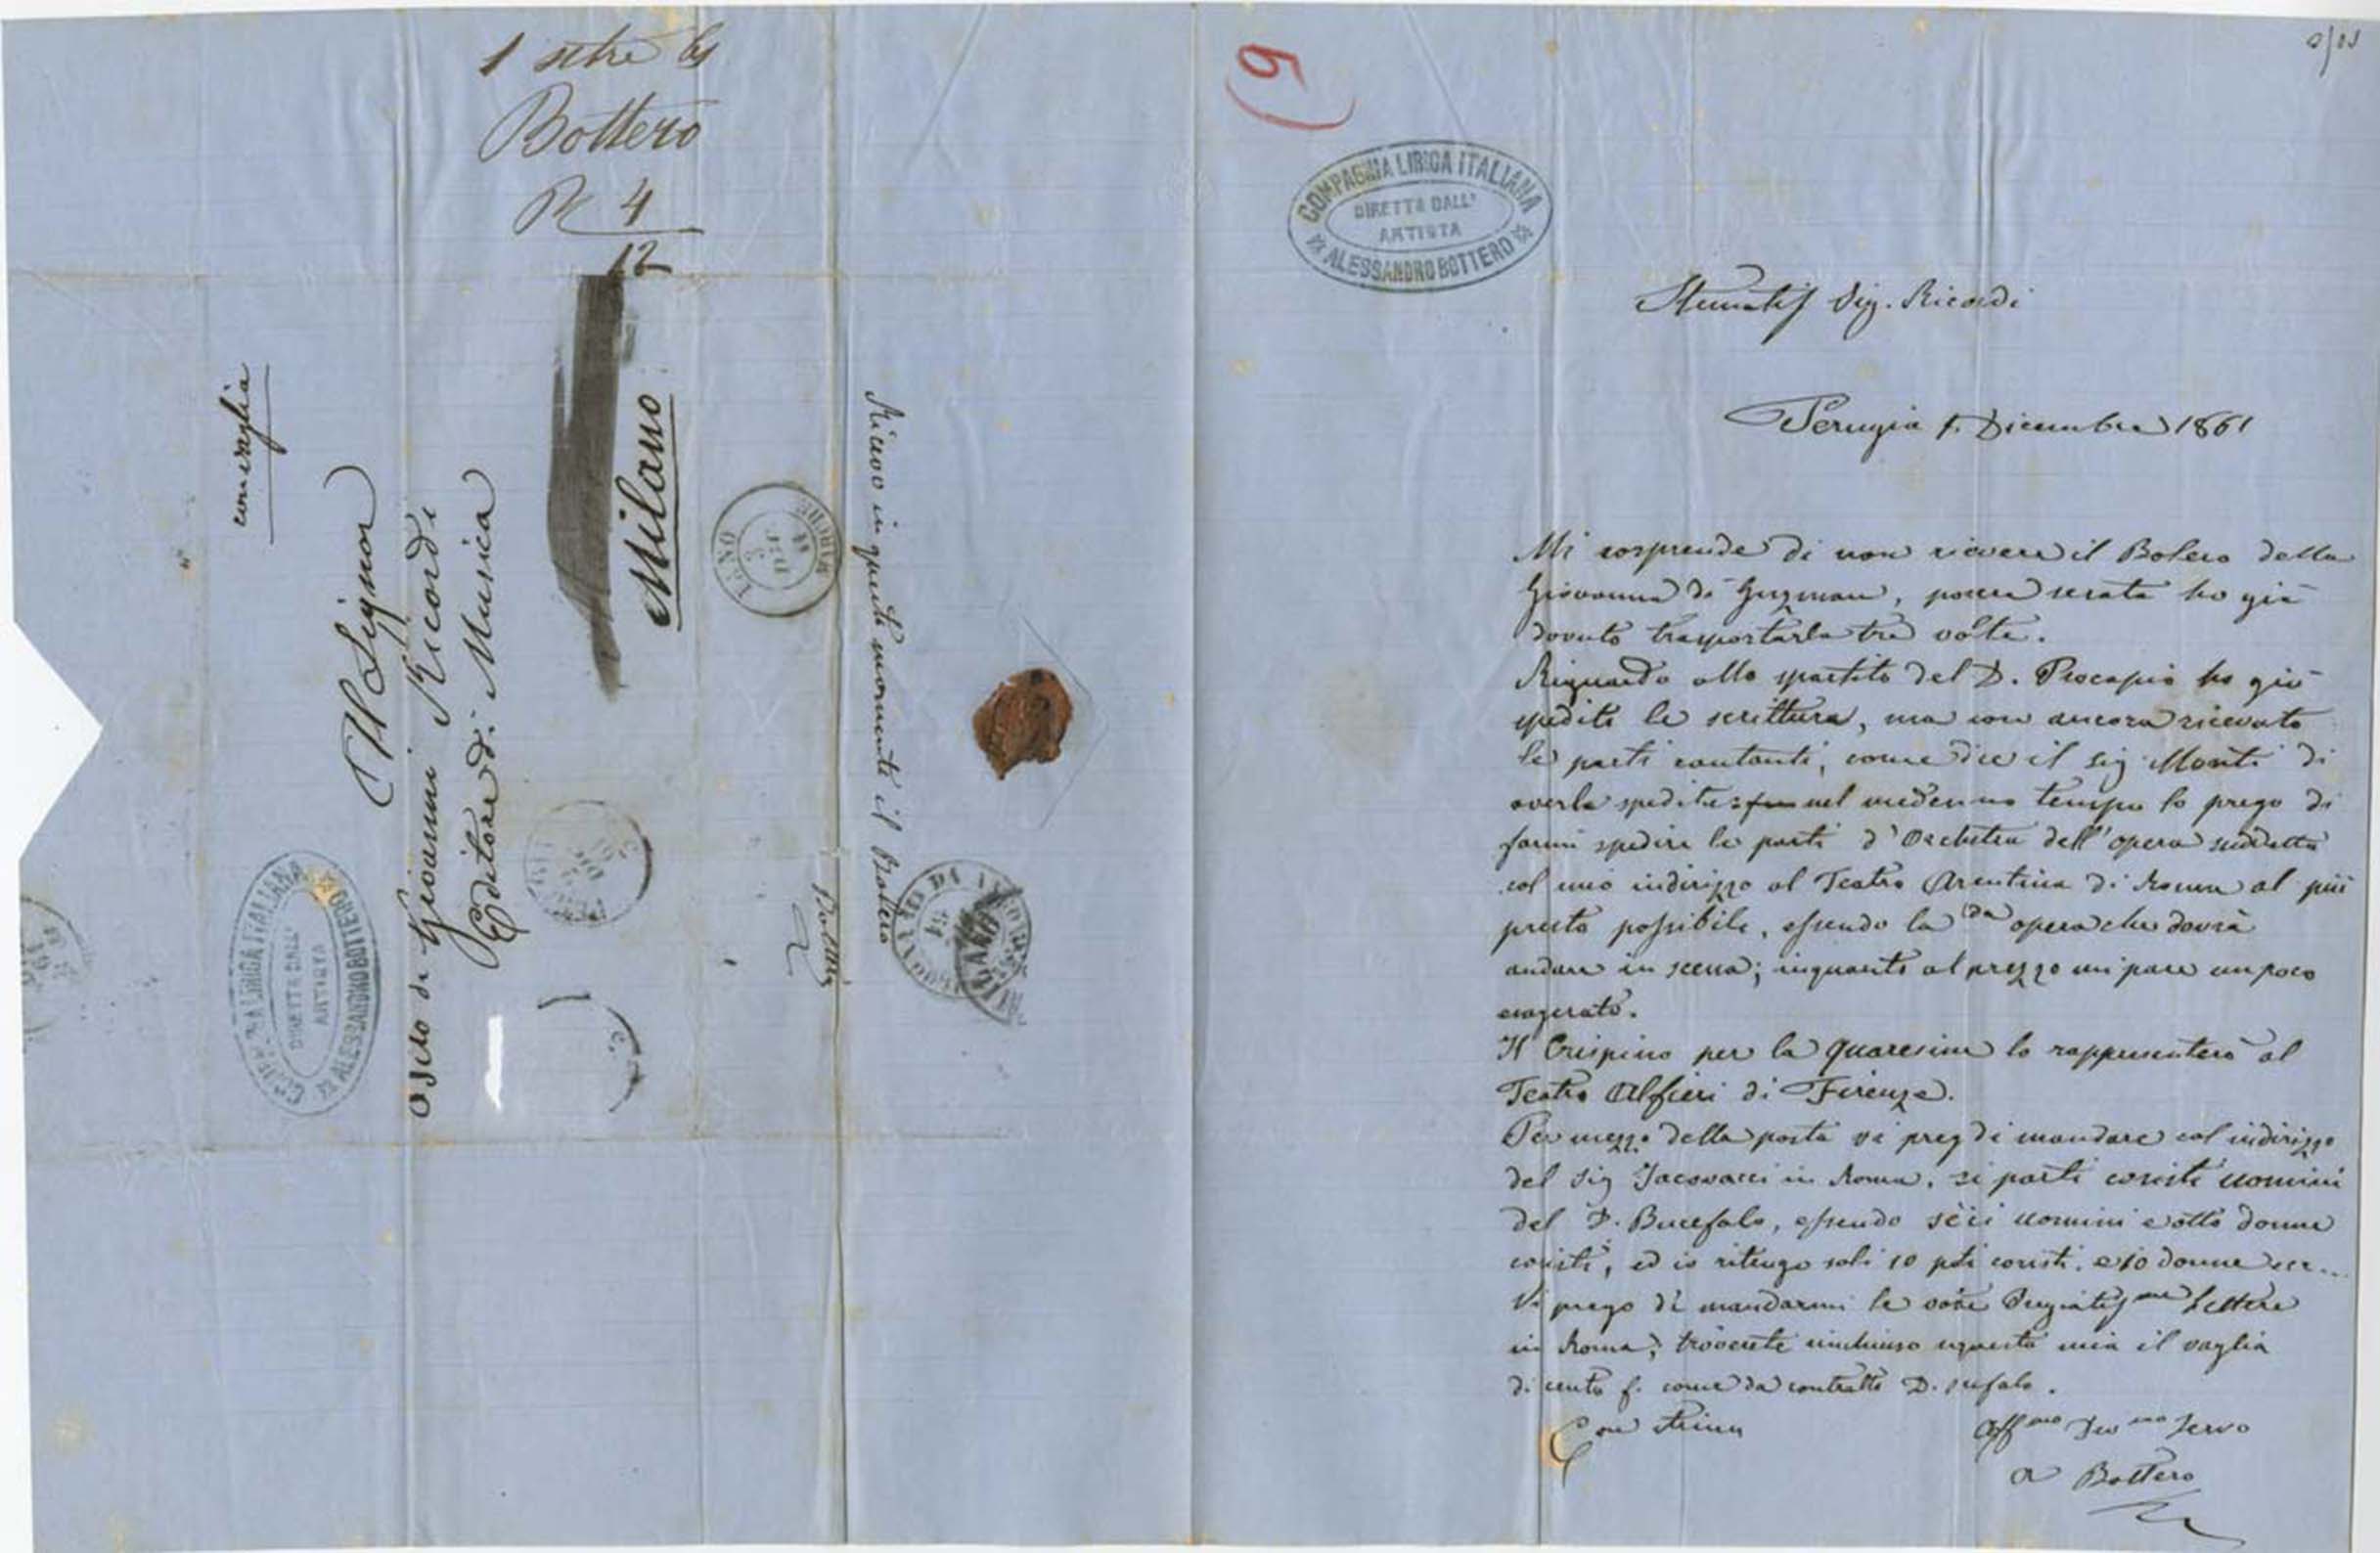 1
Bottero
R 4
12
con vaglia
Al Signor
Tito di Giovanni Ricordi
Editore di Musica
Milano
Ricevo in questo momento il Bolero
Bottero
COMPAGNIA LIRICA ITALIANA
DIRETTA DALL'
ARTISTA
ALESSANDRO BOTTERO
COMPAGNIA LIRICA ITALIANA
DIRETTA DALL'
ARTISTA
ALESSANDRO BOTTERO
Stimatis Sig. Ricordi
Perugia 1. Dicembre 1861
Mi sorprende di non ricevere il Bolero della
Giovanna di Guzman, poiché serata ho già
dovuto trasportarla tre volte.
Riguardo allo spartito del D. Procopio ho già
spedito la scrittura, ma non ancora ricevuto
le parti cantanti, come dice il Sig Monti di
averle spedite: nel medesimo tempo lo prego di
farmi spedire le parti d'Orchestra dell'opera suddetta
col mio indirizzo al Teatro Argentina di Roma al più
presto possibile, essendo la opera che dovrà
andare in scena; inquanto al prezzo mi pare un poco
esagerato.
Il Crispino per la Quaresima lo rappresenterò al
Teatro Alfieri di Firenze.
Per mezzo della posta vi prego di mandare col indirizzo
del Sig Jacovacci in Roma, sei parti coristi uomini
del D. Bucefalo, essendo sèii uomini e otto donne
coristi, ed io ritengo soli 10 pti coristi. e 10 donne
Vi prego di mandarmi le vostre Pregiatisme Lettere
in Roma; troverete rinchiuso in questa mia il vaglia
di cento f. come da contratto D. Bucefalo.
Con stima
Affmo Devmo Servo
A Bottero